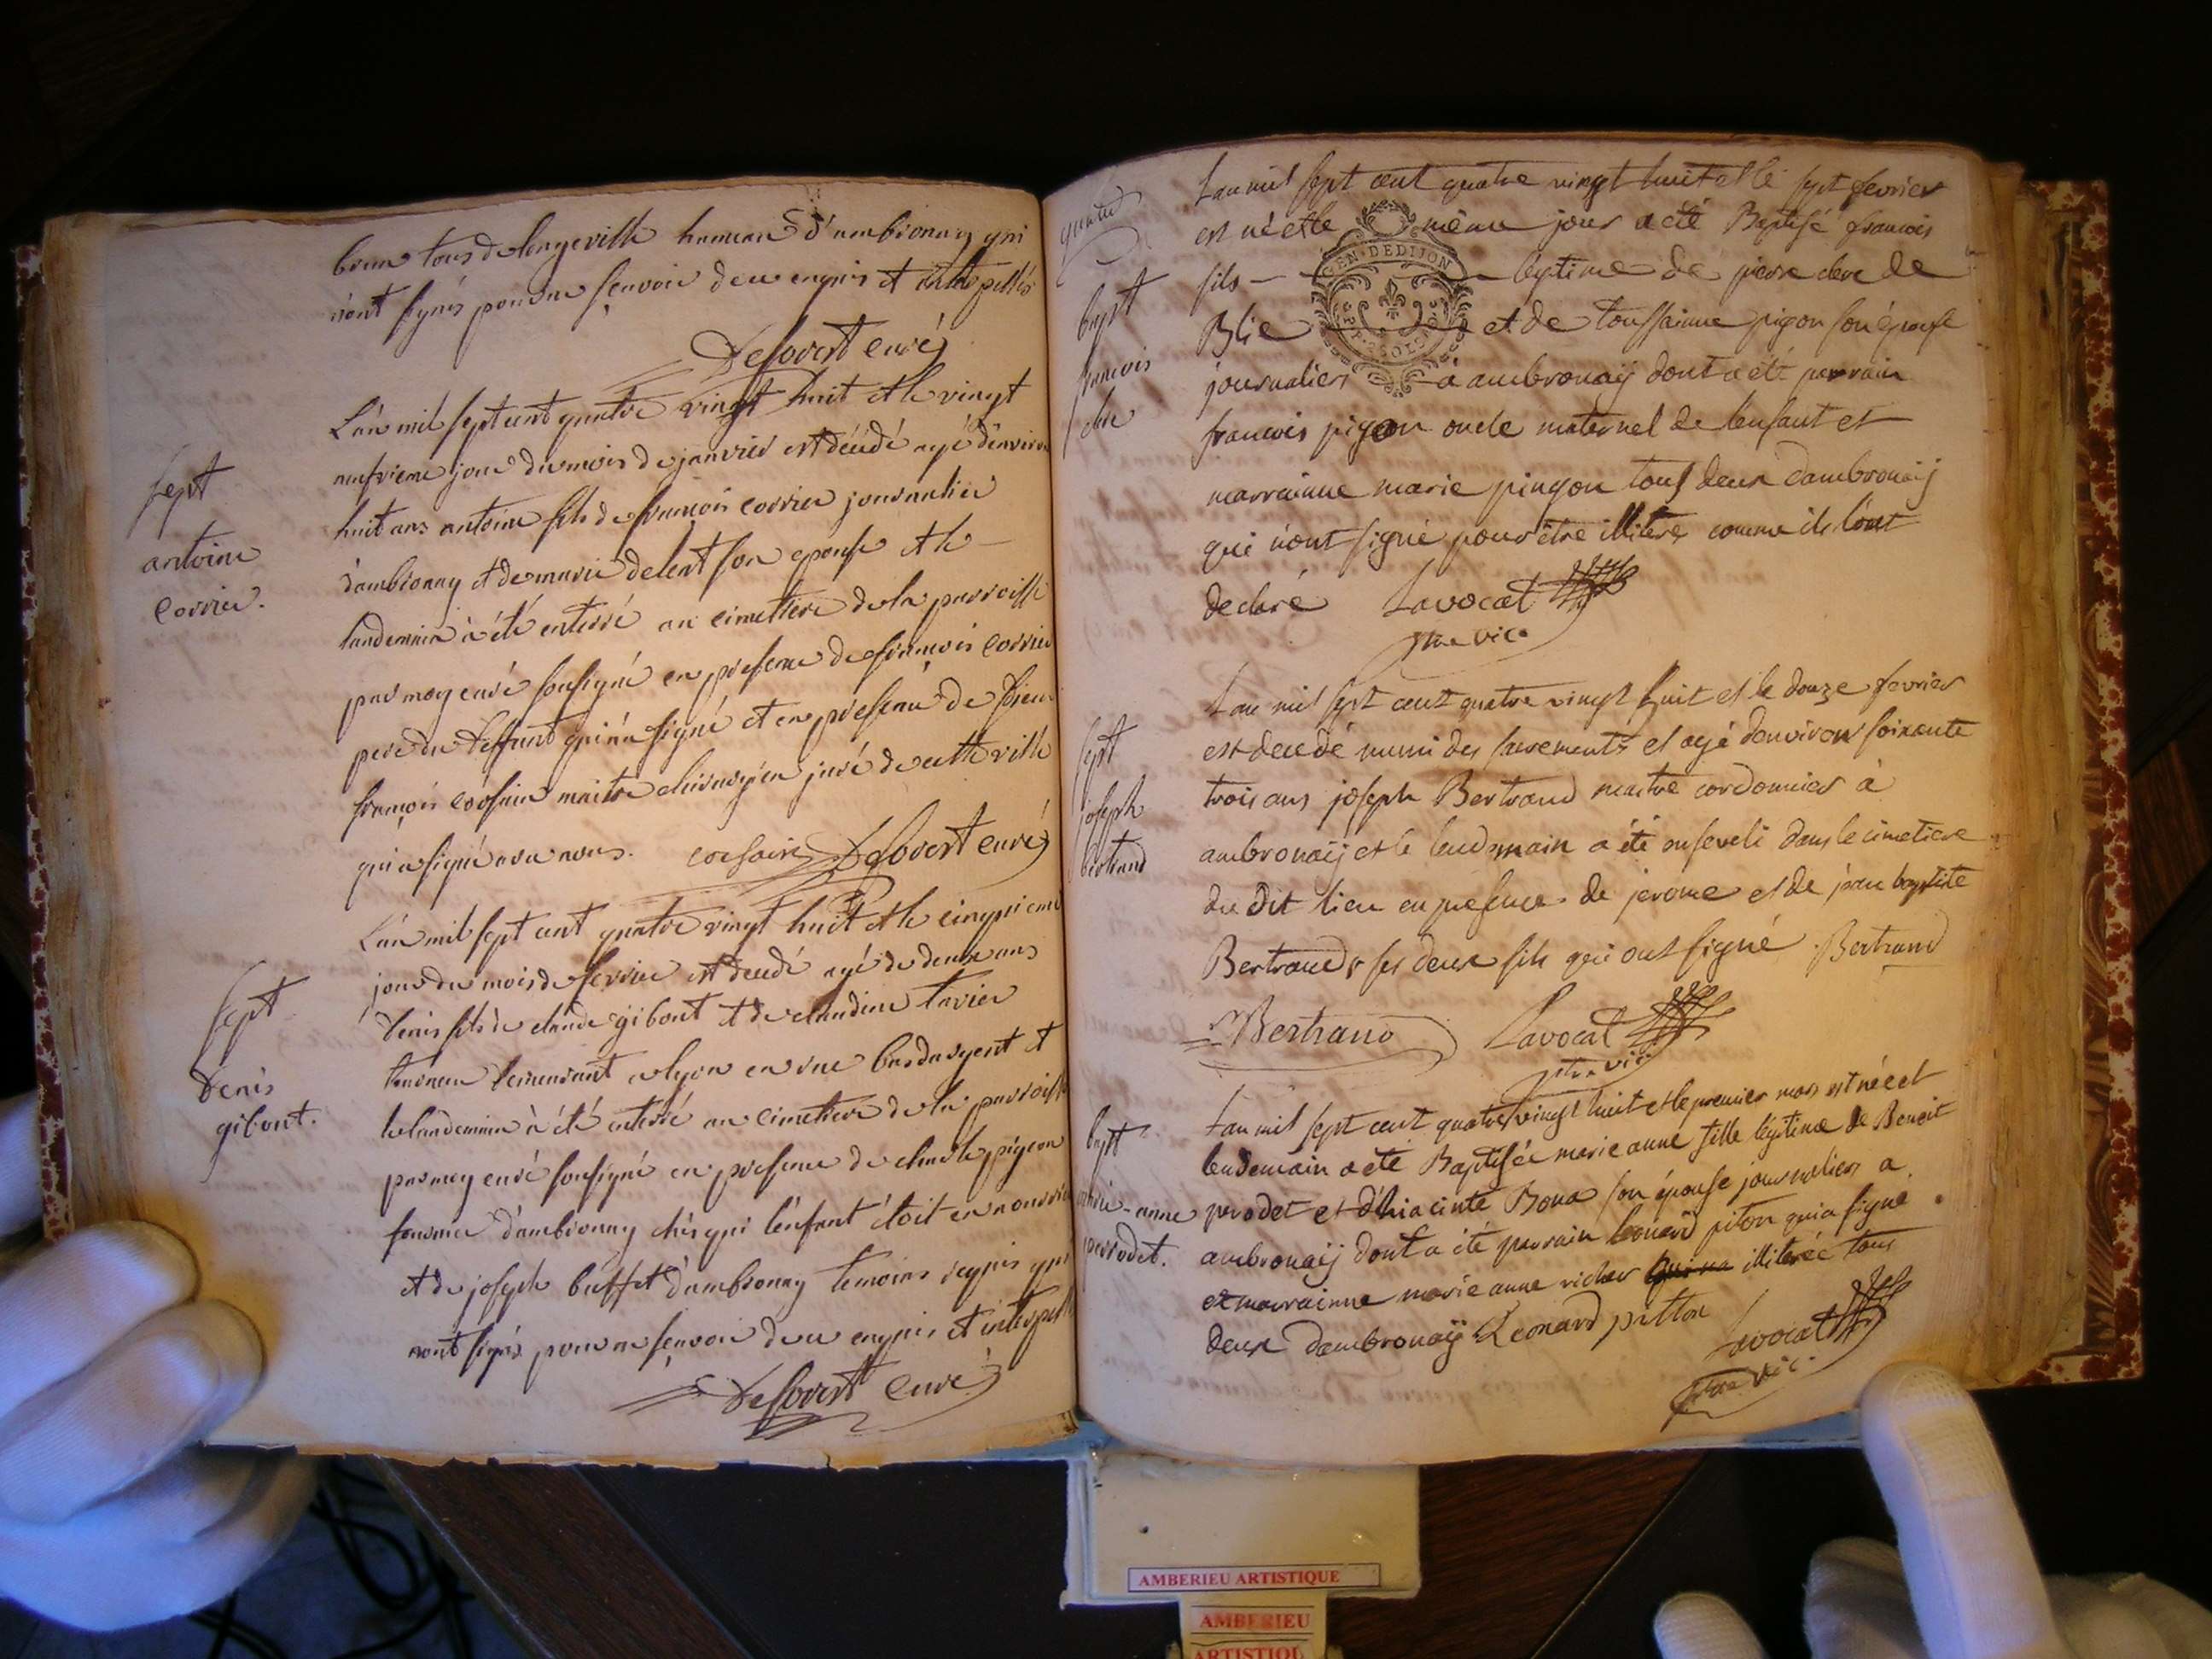 brun tous de longeville hameau d'ambronay qui
n'ont signés pour ne sçavoir de ce enquis et interpellés
Deforest curé
sept
antoine
corrier.
L'an mil sept cent quatre vingt huit et le vingt
neufvieme jour du mois de janvier est décédé agé d'environ
huit ans antoine fils de françois corrier journalier
d'ambronay et de marie delent son epouse et le
landemain à été enterré au cimettiere de la parroisse
par moy curé sousigné en presence de françois corrier
pere du deffunt qui n'a signé et en presence de sieur
françois corsain maitre chirurgien juré de cette ville
qui a signé avec nous. corsain Deforest curé
sept
denis
gibout.
L'an mil sept cent quatre vingt huit et le cinquieme
jour du mois de fevrier est decedé agé de deux ans
denis fils de claude gibout et de claudine tavier
demeurant a lyon en rue basdargent et
le landemain à été enterré au cimetiere de la parroisse
par moy curé sousigné en presence de claude pigeon
d'ambronay chés qui l'enfant étoit en nourrice
et de joseph buffet d'ambronay temoins requis qui
n'ont signé pour ne sçavoir de ce enquis et interpellé
Deforest curé
bapt
francois
clere
L'an mil sept cent quatre vingt huit et le sept fevrier
est né et le même jour a été Baptisé francois
GEN·DEDIJON
fils - legitime de pierre clere de
Blie et de toussainne pigon son épouse
journalier à ambronaÿ dont a été parrain
francois pigon oncle maternel de lenfant et
marrainne marie pingon tous deux dambronaÿ
qui n'ont signé pour être illiteré comme ils l'ont
declaré Lavocat
ptre vic.
sept
joseph
bertrand
L'an mil sept cent quatre vingt huit et le douze fevrier
est decedé muni des sacrements et agé denviron soixante
trois ans joseph Bertrand maitre cordonnier à
ambronaÿ et le lendemain a été enseveli dans le cimetiere
du dit lieu en presence de jerome et de jean baptiste
Bertrand ses deux fils qui ont signé. Bertrand
Bertrand Lavocat
ptre vic
bapt
marie-anne
perrodet.
L'an mil sept cent quatre vingt huit et le premier mars est née et
lendemain a été Baptisée marie anne fille legitime de Benoit
perodet et d'hiacinte Bona son épouse journalier a
ambronaÿ dont a été parrain leonard piton qui a signé
et marrainne marie anne richer qui na illiterée tous
deux dambronaÿ Leonard pitton
Lavocat
ptre vic.
AMBERIEU ARTISTIQUE
AMBERIEU
ARTISTIQUE